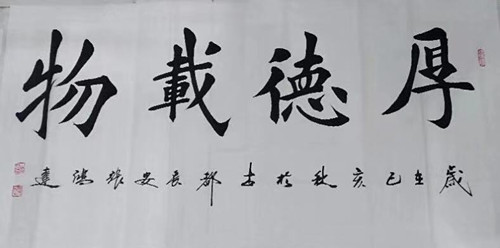 厚德載物
歲在己亥秋於古都長安張鴻達